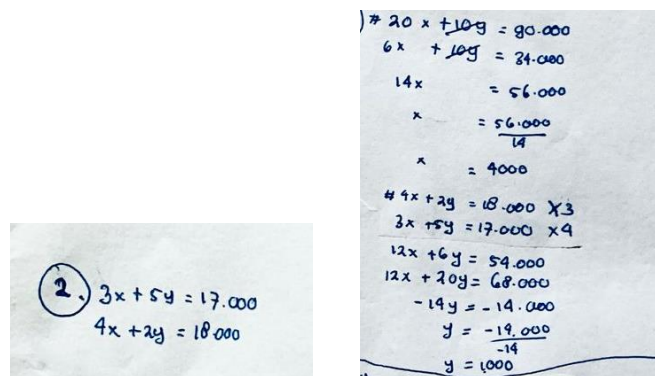 2. 3x + 5y = 17.000
4x + 2y = 18.000
) # 20x + 10y = 90.000
6x + 10y = 34.000
14x = 56.000
x = 56.000
14
x = 4000
# 4x + 2y = 18.000 X3
3x + 5y = 17.000 x4
12x + 6y = 54.000
12x + 20y = 68.000
-14y = -14.000
y = -14.000
-14
y = 1.000